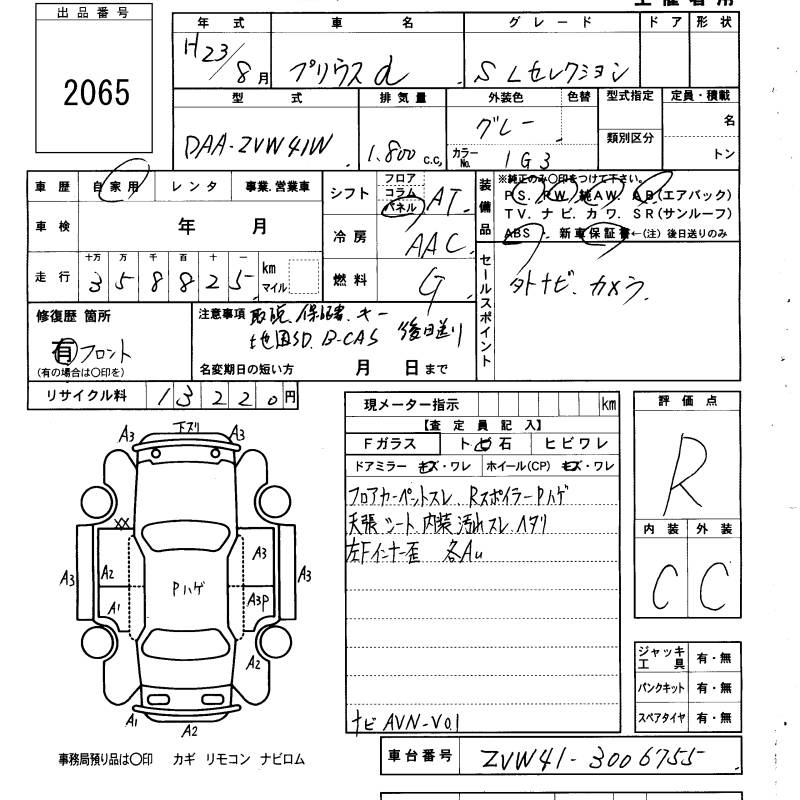 出品番号
2065
年式 車名 グレード ドア 形状
H23/8月 プリウスα SLセレクション
型式 排気量 外装色 色替 型式指定 定員・積載
DAA-ZVW41W 1.800c.c. グレー 名
カラーNo. 1G3 類別区分 トン
車歴 自家用 レンタ 事業.営業車
車検 年 月
走行 十万 万 千 百 十 一
3 5 8 8 2 5 km マイル
シフト フロア コラム パネル AT
冷房 AAC
燃料 G
装備品 ※純正のみ〇印をつけて下さい。
PS. PW. 純AW. AB(エアバック)
TV. ナビ. カワ. SR(サンルーフ)
ABS. 新車保証書←(注) 後日送りのみ
セールスポイント
外ナビ. カメラ.
修復歴 箇所
有 フロント
(有の場合は〇印を)
注意事項 取説. 保証書. キー
地図SD. B-CAS 後日送り
名変期日の短い方 月 日まで
リサイクル料 13220円
現メーター指示 km
【査定員記入】
Fガラス ト 石 ヒビワレ
ドアミラー キズ・ワレ ホイール(CP) キズ・ワレ
フロアカーペットスレ Rスポイラー Pハゲ
天張 シート 内装 汚れ スレ ヘタリ
左Fインナー歪 各Au
ナビ AVN-V01
評価点
R
内装 外装
C C
下ズリ
A3 A3
XX
A3 A2 A3 A3
Pハゲ
A1 A3P
A2
A1 A2
ジャッキ工具 有・無
パンクキット 有・無
スペアタイヤ 有・無
事務局預り品は〇印 カギ リモコン ナビロム
車台番号 ZVW41-3006755